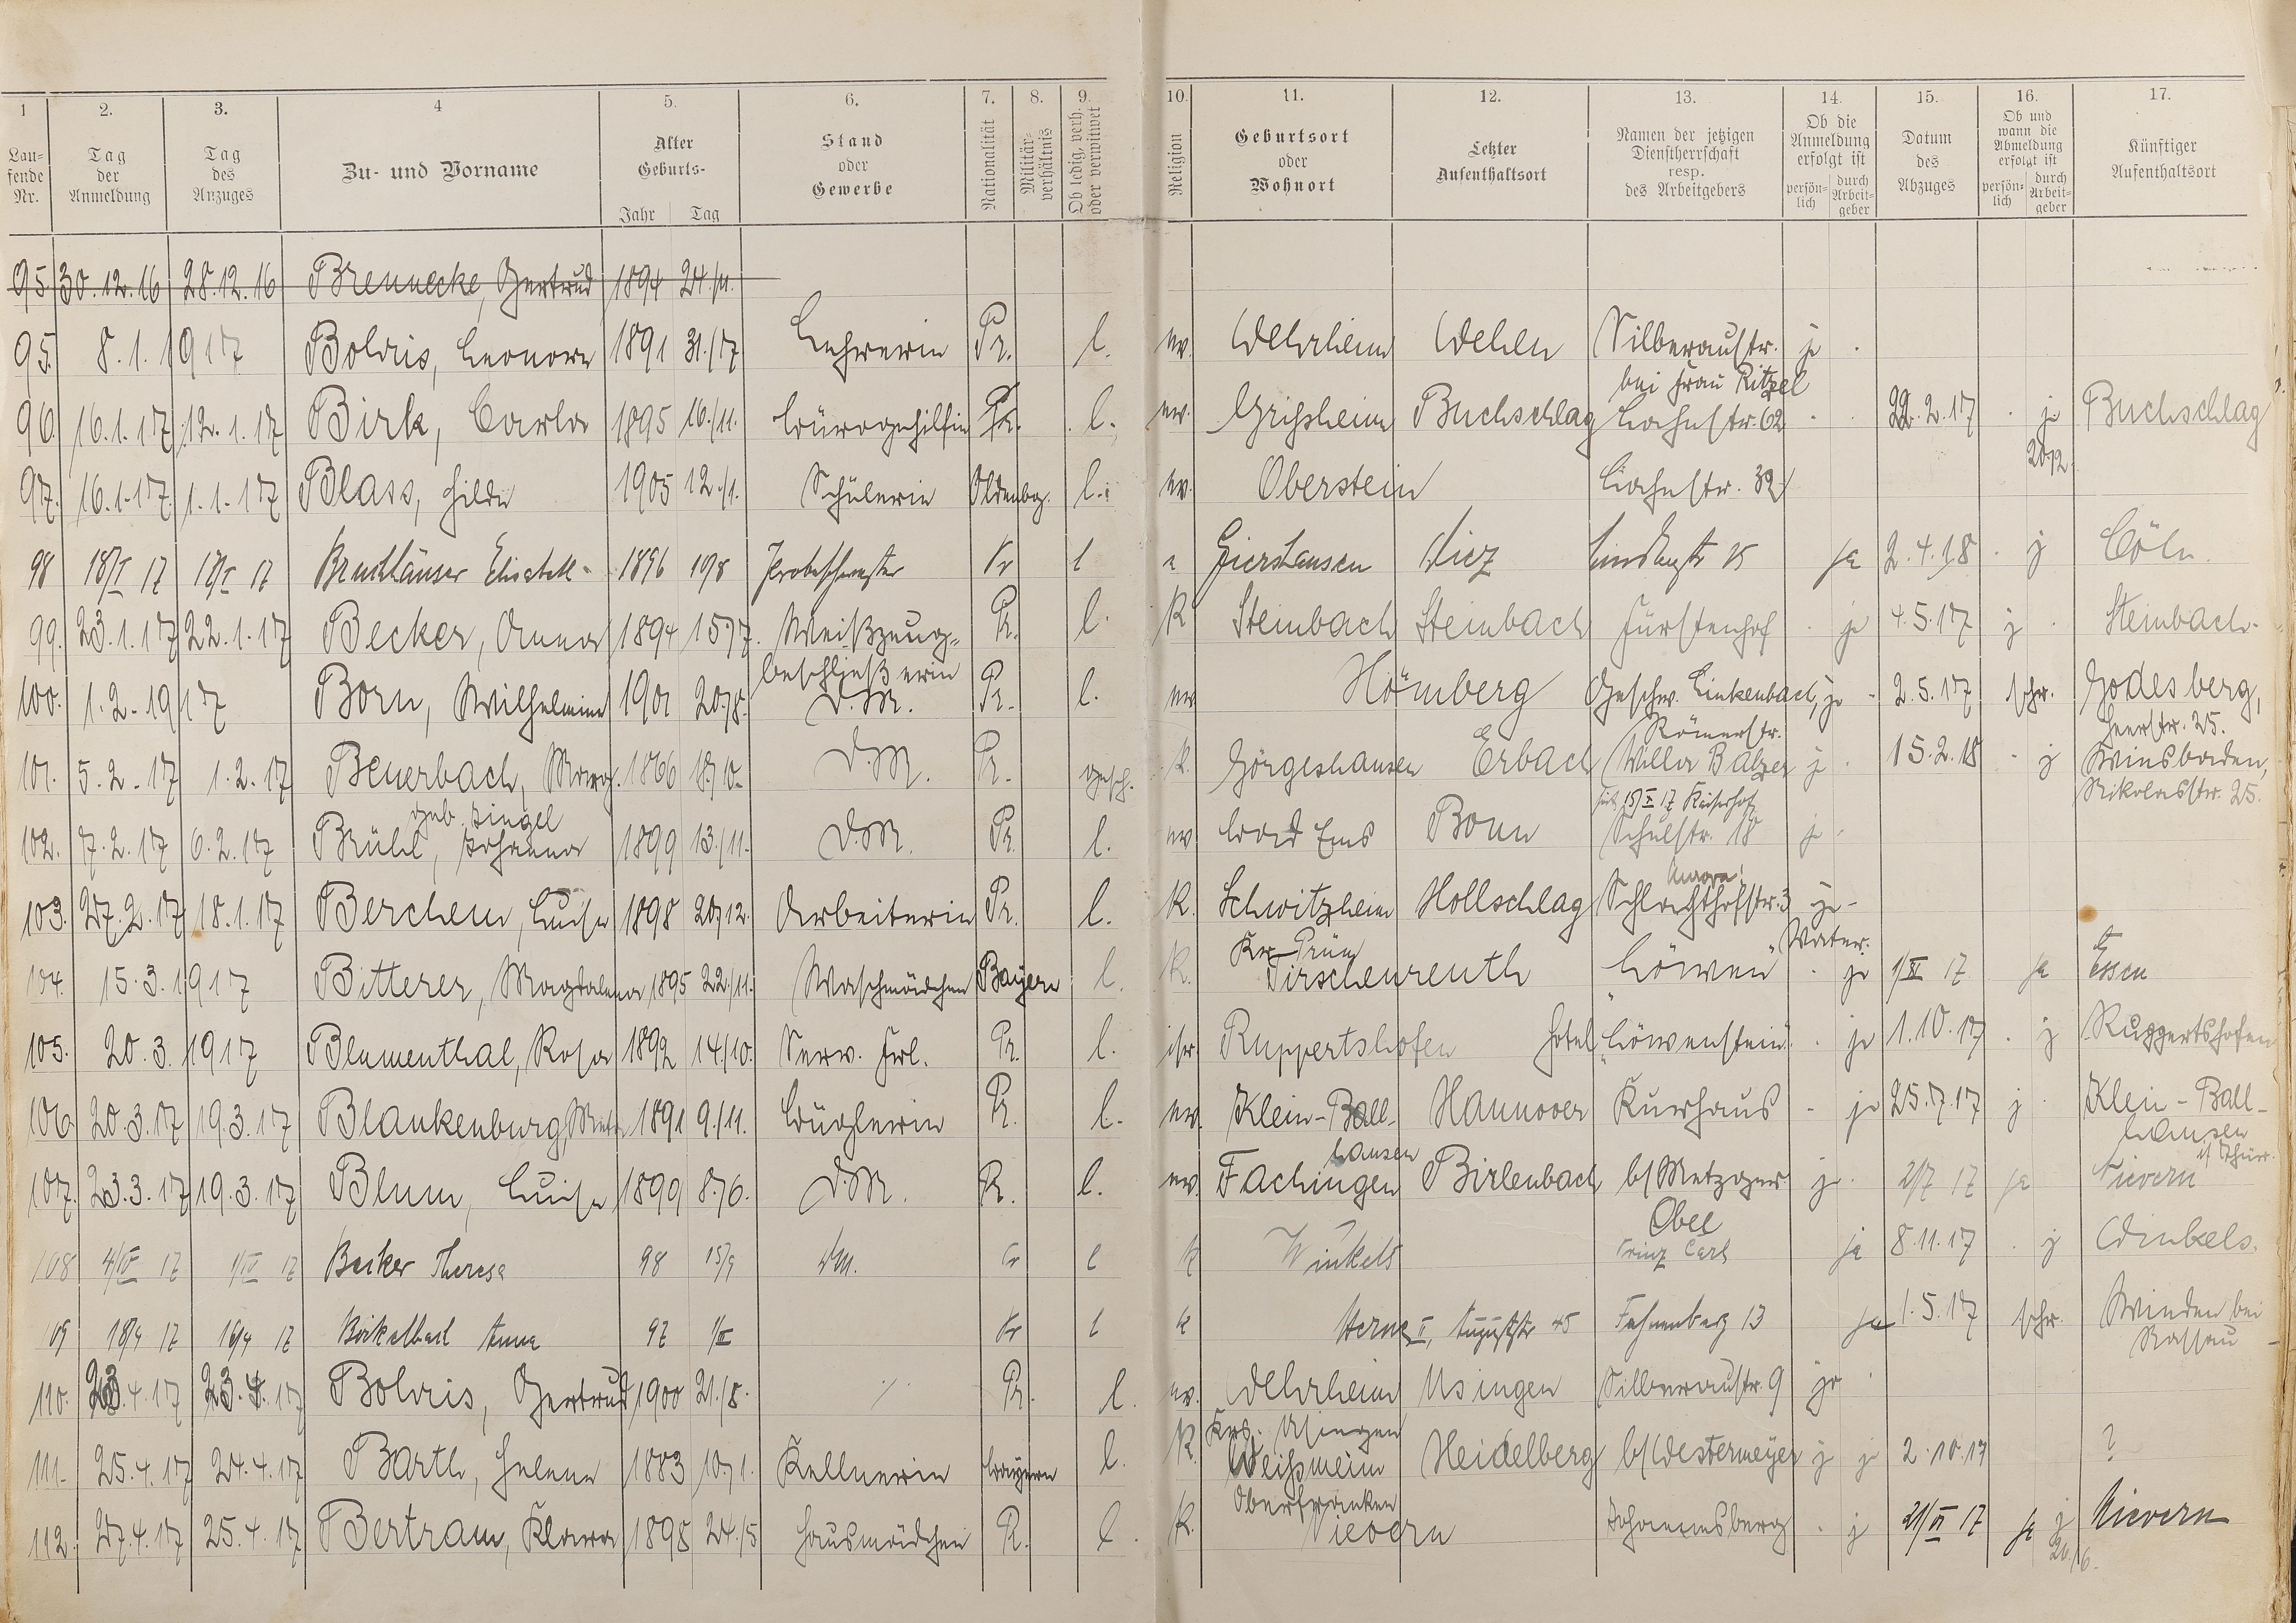 1 2. 3. 4 5. 6. 7. 8. 9. 10. 11. 12. 13. 14. 15. 16. 17.
Lau-
fende
Nr.
Tag
der
Anmeldung
Tag
des
Anzuges
Zu- und Vorname
Alter
Geburts-
Jahr Tag
Stand
oder
Gewerbe
Nationalität
Militär-
verhältnis
Ob ledig, verh.
oder verwitwet
Religion
Geburtsort
oder
Wohnort
Letzter
Aufenthaltsort
Namen der jetzigen
Dienstherrschaft
resp.
des Arbeitgebers
Ob die
Anmeldung
erfolgt ist
persön-
lich
durch
Arbeit-
geber
Datum
des
Abzuges
Ob und
wann die
Abmeldung
erfolgt ist
persön-
lich
durch
Arbeit-
geber
Künftiger
Aufenthaltsort
95. 30.12.16 28.12.16 Brennecke, Gertrud 1894 24./11.
95. 8.1.1917 Bolvis, Leonore 1891 31./7. Lehrerin Pr. l. ev. Wehrheim Wehen Silberaustr. j.
bei Frau Ritzel
96. 16.1.17 12.1.17 Birk, Carla 1895 16./11. Bürogehilfin Pr. l. ev. Grießheim Buchschlag Lahnstr. 62 22.2.17 j. Buchschlag
20/2.
97. 16.1.17. 1.1.17 Blass, Hilde 1905 12./1. Schülerin Oldenbg. l. ev. Oberstein Lahnstr. 32
98 18/I 17 18/I 17 Bruchhäuser Elisabeth 1896 10/8 Probeschwester Pr l Giershausen Diez ja 2.4.18 j Cöln.
99. 23.1.17 22.1.17 Becker, Anna 1894 15./7. Weißzeug- Pr. l. K Steinbach Steinbach Fürstenhof j. 4.5.17 j Steinbach.
beschließerin
100. 1.2.1917 Born, Wilhelmine 1901 20./8. D.M. Pr. l. ev Hömberg Geschw. Linkenbach, j. 2.5.17 schr. Godesberg,
Römerstr. Heerstr. 25.
101. 5.2.17 1.2.17 Beuerbach, Marg. 1866 18./10. D.M. Pr. gesch. k. Görgeshausen Erbach Villa Balzer j. 15.2.18 j Wiesbaden,
geb. Singel seit 15/X 17 Kaiserhof Nikolasstr. 25.
102. 7.2.17 6.2.17 Brühl, Johanna 1899 13./11. D.M. Pr. l. ev Bad Ems Bonn Schulstr. 18 j.
103. 27.2.17 18.1.17 Berchem, Luise 1898 20./12. Arbeiterin Pr. l. K. Schwitzheim Hollschlag Schlachthofstr. 3 j.
Kr. Prüm Vater.
104. 15.3.1917 Bitterer, Magdalena 1895 22./11. Waschmädchen Bayern l. K. Tirschenreuth „Löwen“ j. 1/XI 17 ja Essen
105. 20.3.1917 Blumenthal, Rosa 1892 14./10. Serv. Frl. Pr. l. isr. Ruppertshofen Hotel „Löwenstein“. j. 1.10.17 j Ruppertshofen
106. 20.3.17 19.3.17 Blankenburg, Meta 1891 9./11. Büglerin Pr. l. ev. Klein-Ball- Hannover Kurhaus j. 25.7.17 j Klein-Ball-
hausen hausen
i/Thür.
107. 23.3.17 19.3.17 Blum, Luise 1899 8./6. D.M. Pr. l. ev. Fachingen Birlenbach b/Metzger j. 2/7 17 ja Nievern
Obel
108 4/IV 17 1/IV 17 Becker Therese 98 15/9 DM. Pr l k Winkels Prinz Carl ja 8.11.17 j Winkels.
109 18/4 17 16/4 17 Birkelbach Anna 97 1/III Pr l k Herne II, Auguststr 45 Fahnenberg 13 ja 1.5.17 schr. Winden bei
Nassau
110. 23.4.17 23.4.17 Bolvis, Gertrud 1900 21./8. Pr. l. ev. Wehrheim Usingen Silberaustr. 9 j.
Krs. Usingen
111. 25.4.17 24.4.17 Barth, Helene 1883 10./1. Kellnerin Bayern l. K. Weißmein Heidelberg b/Westermeyer j j 2.10.17 ?
Oberfranken
112. 27.4.17 25.4.17 Bertram, Klara 1898 24./5 Hausmädchen Pr. l. K. Nievern Johannisberg j 21/VI 17 ja j Nievern
20./6.